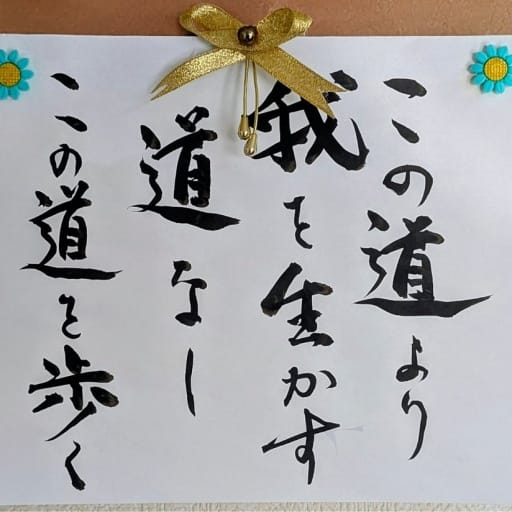 この道より
我を生かす
道なし
この道を歩く